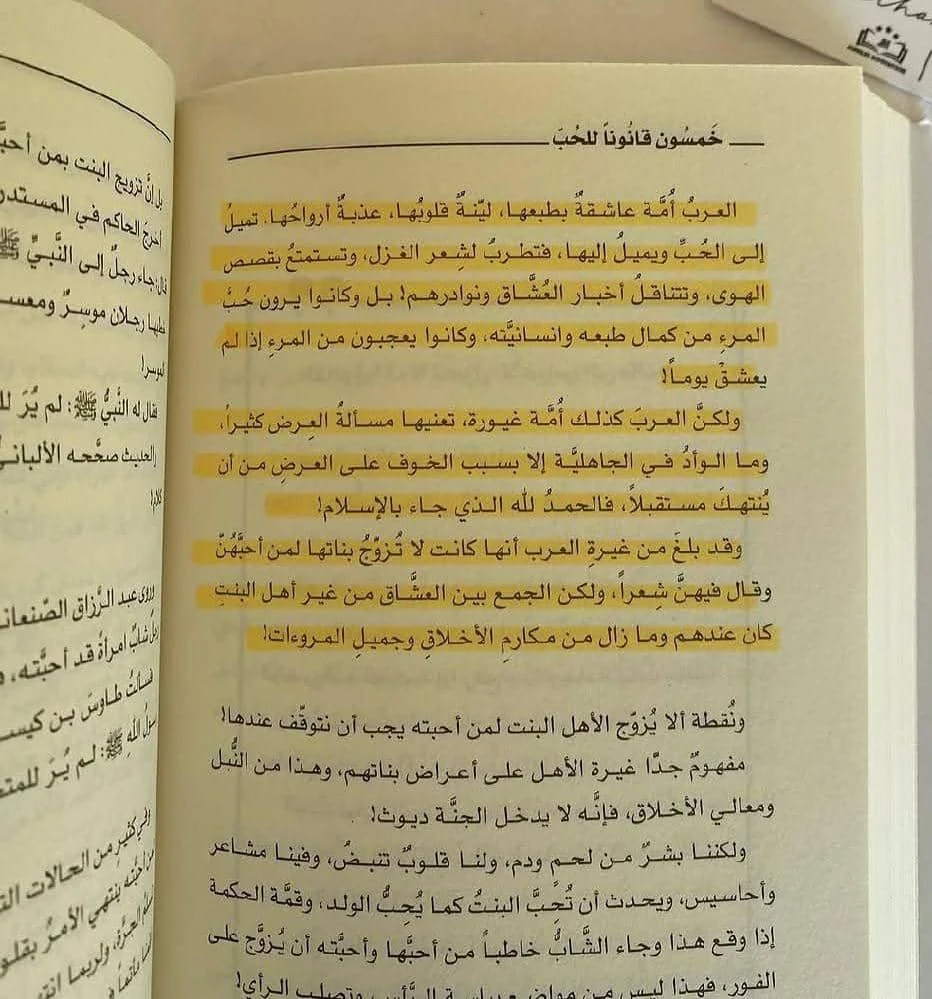 خَمسُون قانُوناً للحُبّ
العربُ أُمَّة عاشقةٌ بطبعها، ليّنةٌ قلوبُها، عذبةٌ أرواحُها. تميلُ
إلى الحُبِّ ويميلُ إليها، فتطربُ لشِعر الغزل، وتستمتعُ بقصص
الهوى، وتتناقلُ أخبار العُشَّاق ونوادرهم! بل وكانوا يرون حُبَّ
المرءِ من كمال طبعه وانسانيَّته، وكانوا يعجبون من المرءِ إذا لم
يعشقْ يوماً!
ولكنَّ العربَ كذلك أُمَّة غيورة، تعنيها مسألةُ العِرض كثيراً،
وما الوأدُ في الجاهليَّة إلا بسبب الخوف على العرضِ من أن
يُنتهكَ مستقبلاً، فالحمدُ لله الذي جاء بالإسلام!
وقد بلغَ من غيرةِ العرب أنها كانت لا تُزوِّجُ بناتها لمن أحبَّهُنّ
وقال فيهنَّ شِعراً، ولكن الجمع بين العشَّاق من غير أهل البنتِ
كان عندهم وما زال من مكارمِ الأخلاقِ وجميلِ المروءات!
ونُقطة ألا يُزوّج الأهل البنت لمن أحبته يجب أن نتوقّف عندها!
مفهومٌ جدّاً غيرة الأهل على أعراض بناتهم، وهذا من النُّبل
ومعالي الأخلاق، فإنَّه لا يدخل الجنَّة ديوث!
ولكننا بشرٌ من لحمٍ ودم، ولنا قلوبٌ تنبضُ، وفينا مشاعر
وأحاسيس، ويحدث أن تُحِبَّ البنتُ كما يُحِبُّ الولد، وقمَّة الحكمة
إذا وقع هذا وجاء الشَّابُّ خاطباً من أحبَّها وأحبَّته أن يُزوَّج على
الفور، فهذا ليس من مواضع
بل إنَّ تزويج البنت بمن
أخرجَ الحاكم في المستدر
قال: جاء رجلٌ إلى النَّبيِّ ﷺ
رجلان موسِرٌ ومعس
الموسر!
فقال له النَّبيُّ ﷺ: لم يُرَ
الحديث صحَّحه الألبانيّ
وروى عبد الرَّزاق الصّنعاني
امرأةً قد أحبَّته،
طاوَسَ بن كيس
رسولُ اللهِ ﷺ: لم يُرَ للمتح
وفي كثيرٍ من الحالات
ينتهي الأمرُ بقلو